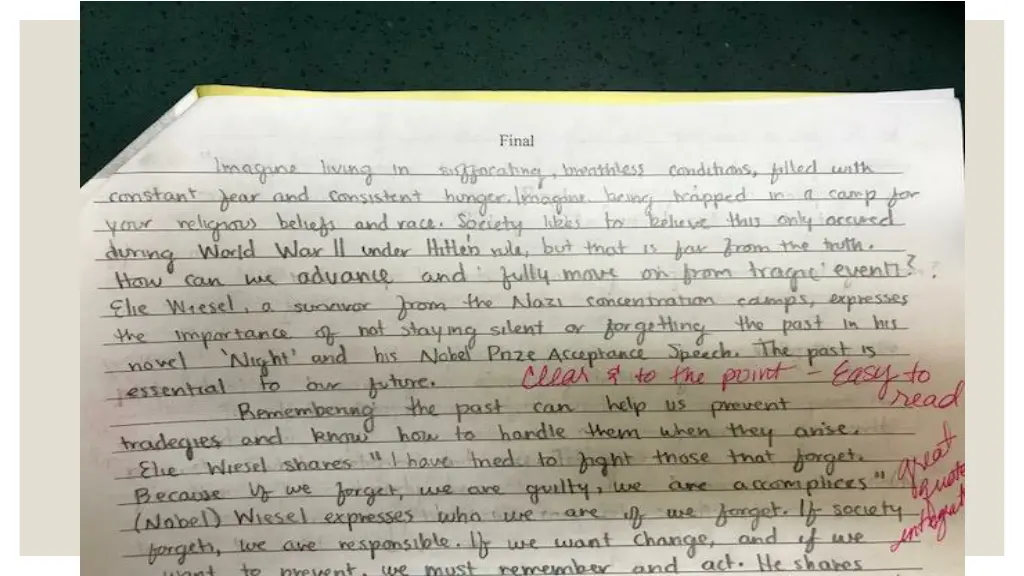 Final
Imagine living in suffocating, breathless conditions, filled with
constant fear and consistent hunger. Imagine being trapped in a camp for
your religious beliefs and race. Society likes to believe this only occured
during World War II under Hitler's rule, but that is far from the truth.
How can we advance and fully move on from tragic events?
Elie Wiesel, a survivor from the Nazi concentration camps, expresses
the importance of not staying silent or forgetting the past in his
novel 'Night' and his Nobel Prize Acceptance Speech. The past is
essential to our future.
Clear & to the point - Easy to
read
Remembering the past can help us prevent
tradegies and know how to handle them when they arise.
Elie Wiesel shares "I have tried to fight those that forget.
Because if we forget, we are guilty, we are accomplices"
(Nobel) Wiesel expresses who we are if we forget. If society
great
quote
forgets, we are responsible. If we want change, and if we
want to prevent, we must remember and act. He shares